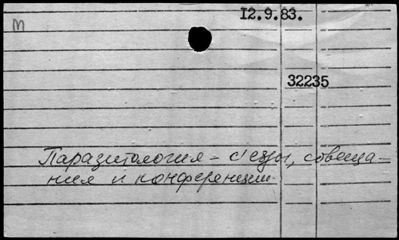 12.9.83.
m
32235
Паразитология – с'езды, совеща-
ния и конференции